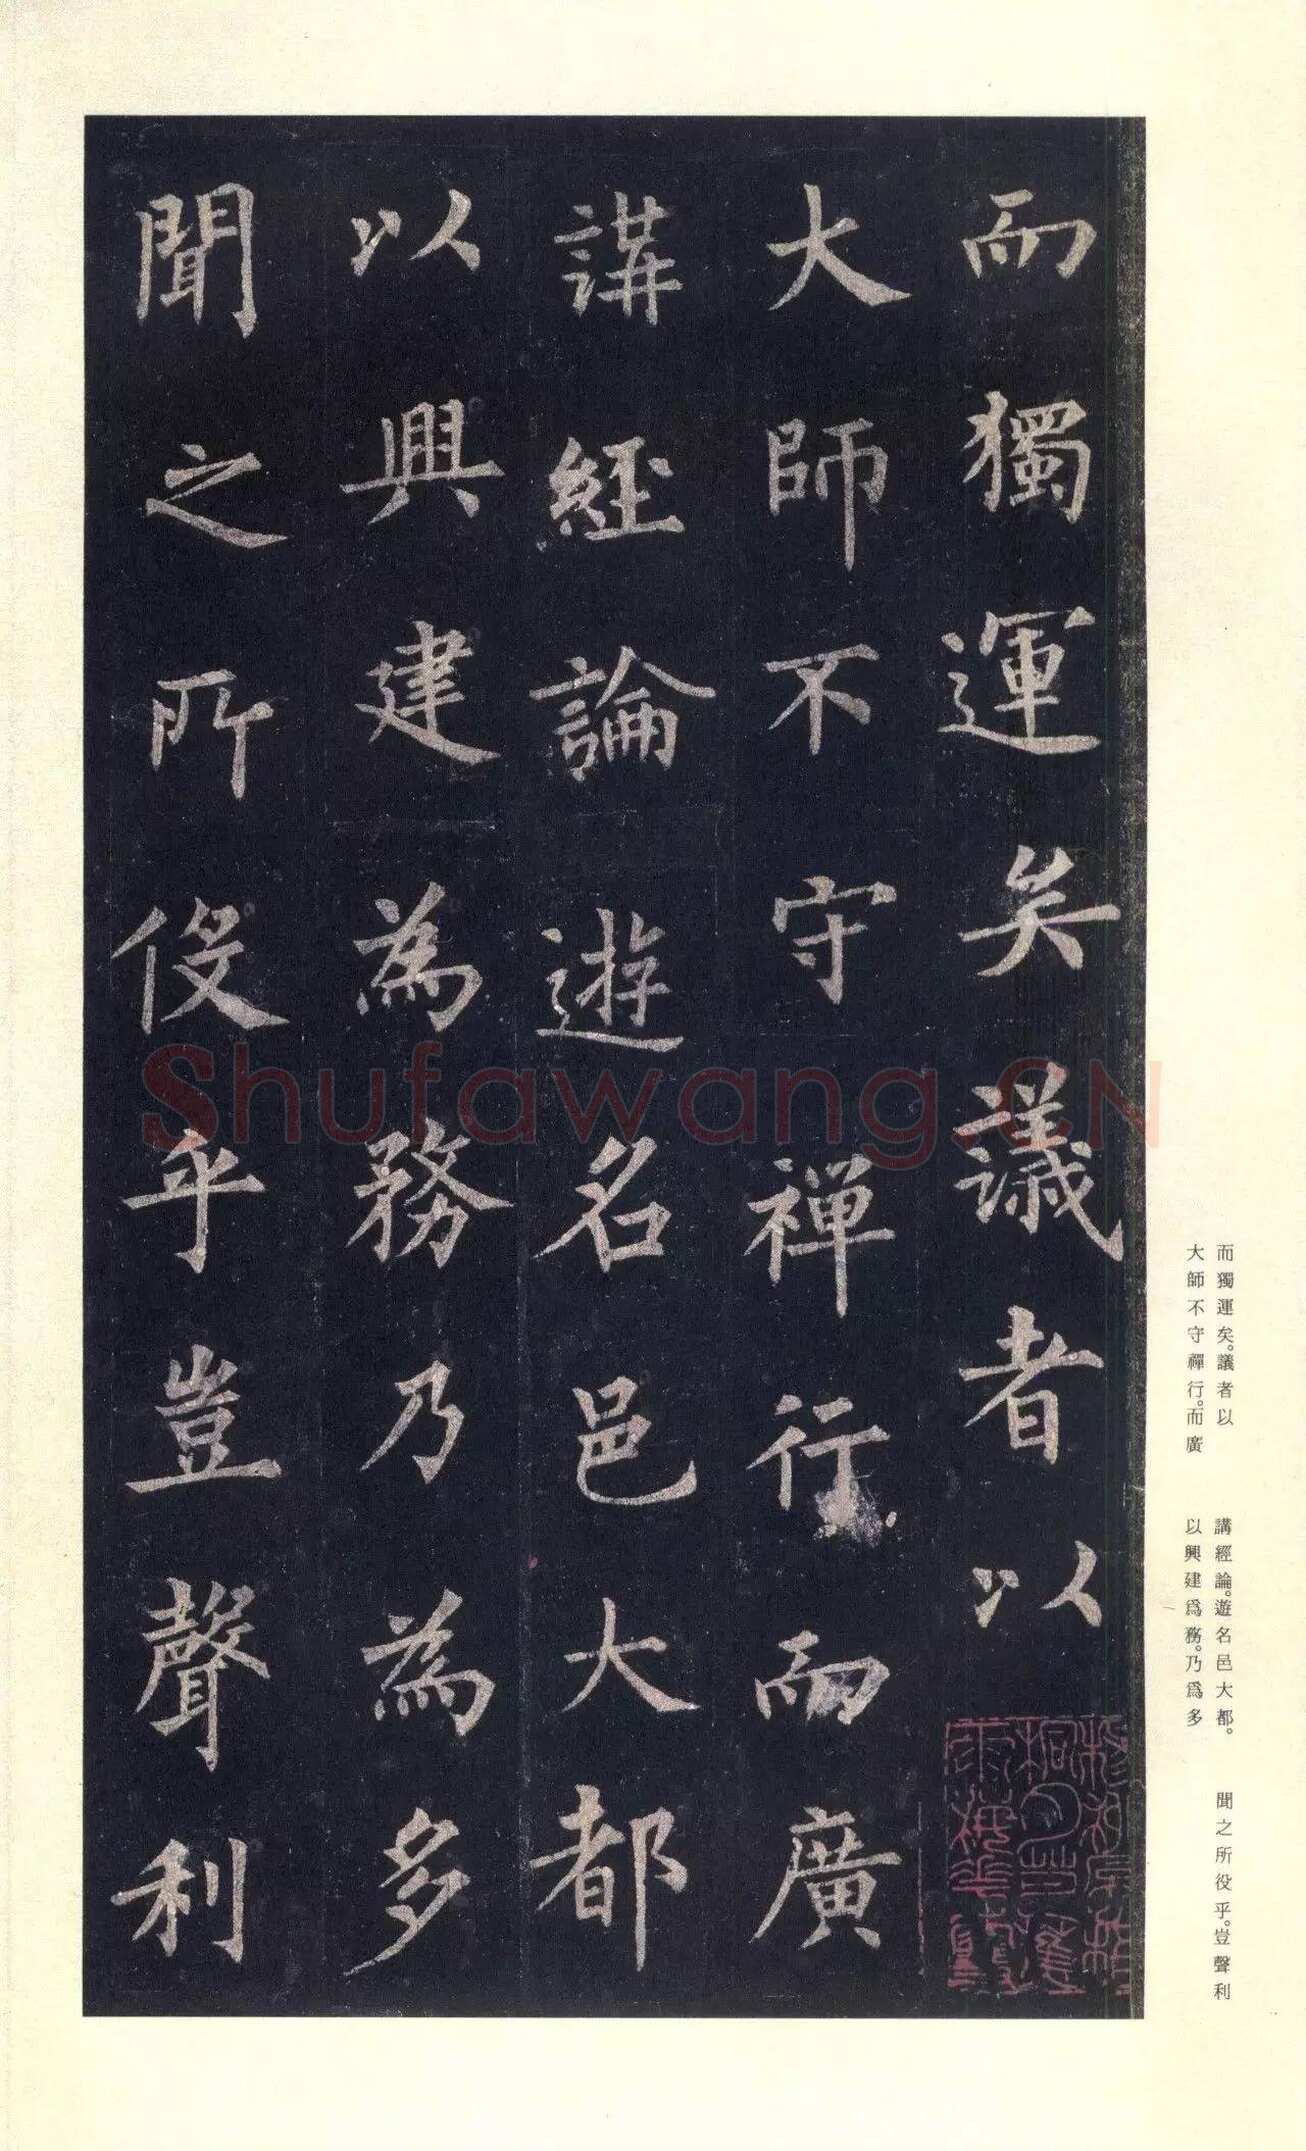 而獨運矣議者以
大師不守禪行而廣
講經論遊名邑大都
以興建為務乃為多
聞之所伇乎豈聲利
Shufawang.CN
而獨運矣。議者以
大師不守禪行。而廣
講經論。遊名邑大都。
以興建爲務。乃爲多
聞之所役乎。豈聲利